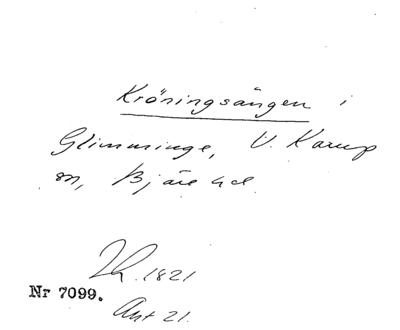 Kröningsången i
Glimminge, V. Karup
sn, Bjäre hd.
Lh. 1821
Nr 7099.
Ant 21.